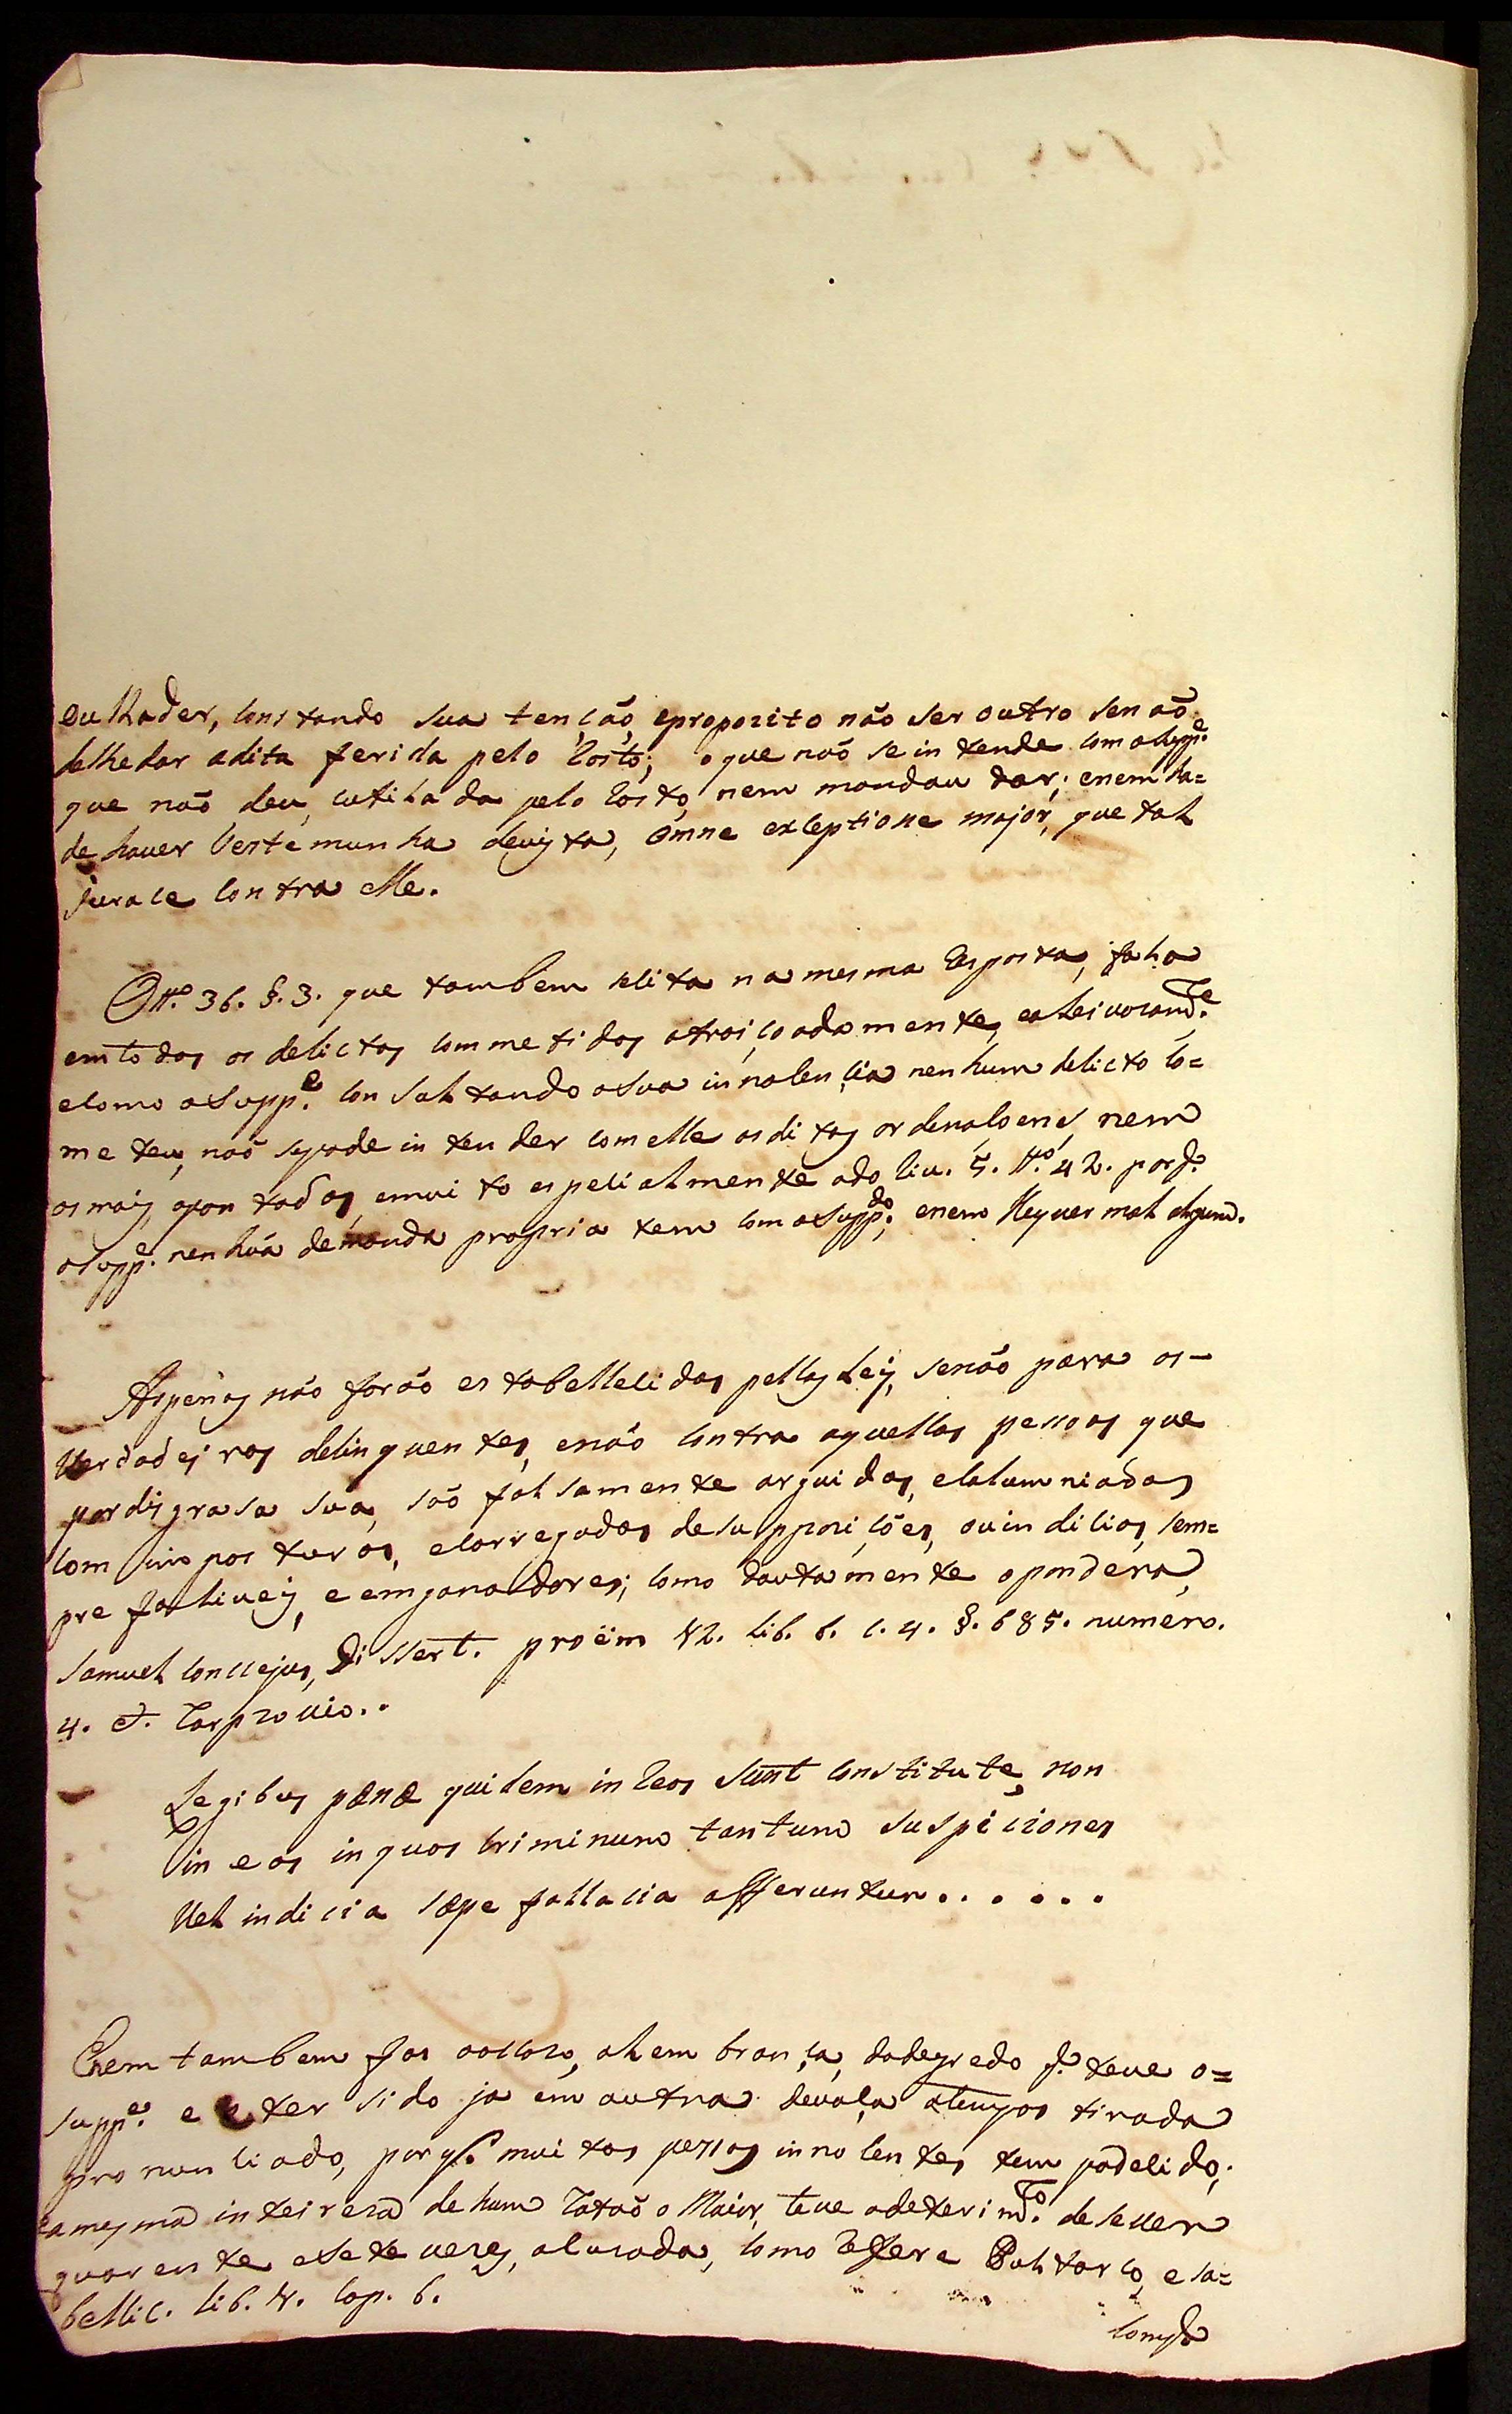 ou lhader, constando sua tenção, eproposito não ser outro senaõ
delhedar adita ferida pelo Rosto; oque naõ se intende com osuppe.
que naõ deu, cutilada pelo Rosto, nem mandou dar; enem ha=
de hauer testemunha deuista, omne exceptione major, que tal
jurace contra elle.
O tto. 36. §. 3. que tambem seita na mesma Resposta, fala
emtodos os delictos commetidos atraiçoadamente, ealeiuosamte.
ecomo osuppe. consaltando asua innocencia nenhum delicto co=
meteu, naõ sepode intender comelle asditas ordenaçoens, nem
asmais apontadas, emuito especialmente ado liu. 5. tto. 42. porq.
osuppe. nenhuã demanda propria tem com osuppdo., enem lhequer mal algum.
Aspenas não forão estabellecidas pellas Leis, senão para os-
Verdadeiros delinquentes, enão contra aquellas pessoas que
pordisgrasa sua, saõ falsamente arguidas, ecalumniadas
com imposturas, ecarregadas desupposições, ouindicios, sem=
pre faliueis, e emganadores; como doutamente opondera,
Samuel Conccejus, Dissert. proëm 12. lib. 6. c. 4. §. 685. numero.
4. et. Carpzouio..
Legibus pænæ quidem in Reos sunt constitute, non
in eos in quos criminum tantum suspiciones
Vel indicia sæpe fallacia afferuntur......
Enem tambem fas aocaso, alembrança, dodegredo q. teue o=
suppe. e ter sido ja em outra deuaça atempos tirada
pronunciado, porq. muitas pessoas innocentes tem padecido;
eamesma inteiresa de hum Cataõ o Maior, teue odeterimto. deseuer
quarenta esete uezes, acusada, como Refere Pultarco, e sa=
bellic. lib. 4. cap. 6.